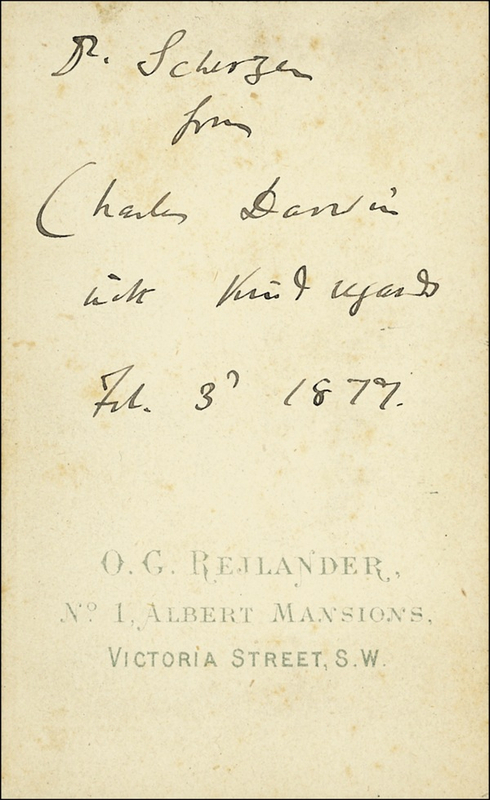 Dr. Scherzer
from
Charles Darwin
with kind regards
Feb. 3d 1877.
O. G. REJLANDER,
No 1, ALBERT MANSIONS,
VICTORIA STREET, S.W.